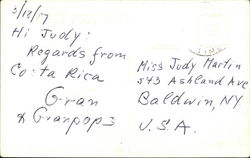 Hi Judy:
Regards from
Costa Rica
Gran
& Granpops
Miss Judy Martin
543 Ashland Ave
Baldwin, NY
U.S.A.